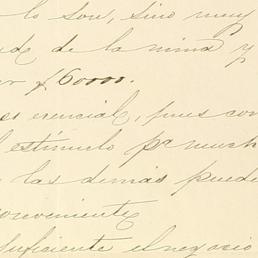 lo son, sino muy
de la mina y
$60000.
es esencial, pues con
estímulo pa. much
las demás puede
conveniente
suficiente el negocio